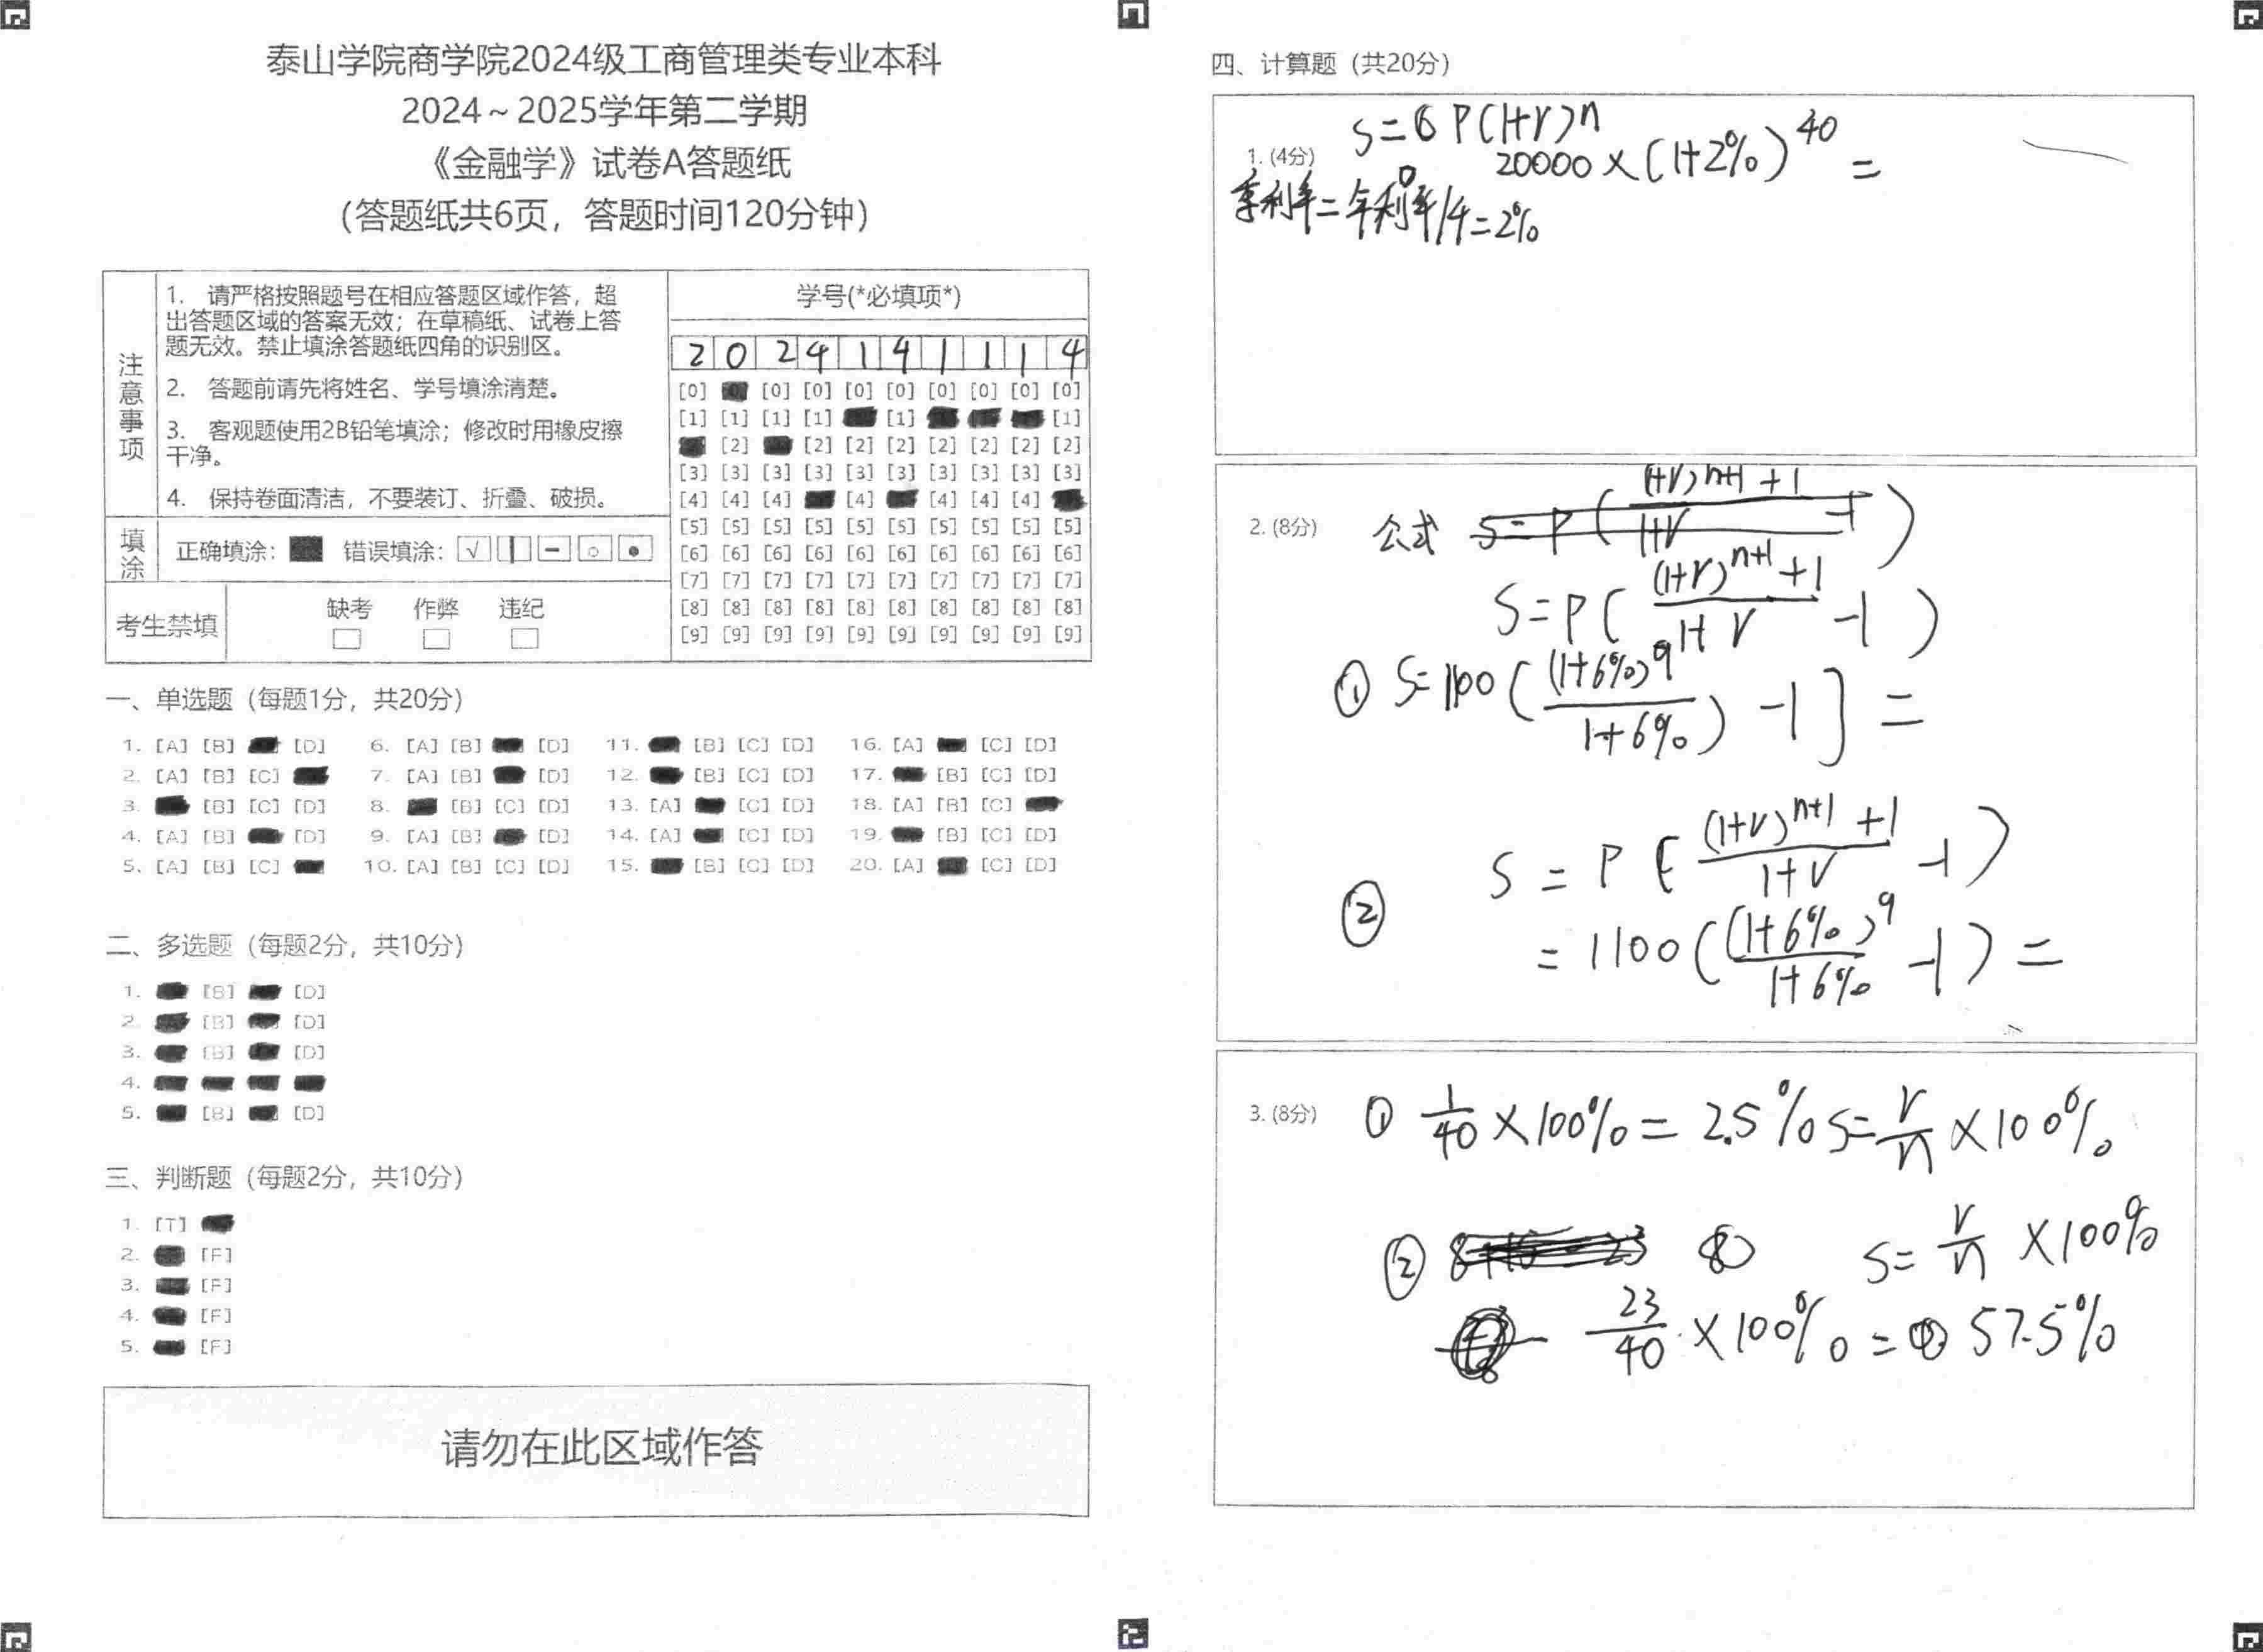 泰山学院商学院2024级工商管理类专业本科
2024～2025学年第二学期
《金融学》试卷A答题纸
（答题纸共6页，答题时间120分钟）
注意事项
1. 请严格按照题号在相应答题区域作答，超
出答题区域的答案无效；在草稿纸、试卷上答
题无效。禁止填涂答题纸四角的识别区。
2. 答题前请先将姓名、学号填涂清楚。
3. 客观题使用2B铅笔填涂；修改时用橡皮擦
干净。
4. 保持卷面清洁，不要装订、折叠、破损。
填涂 正确填涂： 错误填涂：
考生禁填 缺考 作弊 违纪
学号(*必填项*)
2 0 2 4 1 4 1 1 1 4
[0] [0] [0] [0] [0] [0] [0] [0] [0]
[1] [1] [1] [1] [1] [1]
[2] [2] [2] [2] [2] [2] [2] [2]
[3] [3] [3] [3] [3] [3] [3] [3] [3] [3]
[4] [4] [4] [4] [4] [4] [4]
[5] [5] [5] [5] [5] [5] [5] [5] [5] [5]
[6] [6] [6] [6] [6] [6] [6] [6] [6] [6]
[7] [7] [7] [7] [7] [7] [7] [7] [7] [7]
[8] [8] [8] [8] [8] [8] [8] [8] [8] [8]
[9] [9] [9] [9] [9] [9] [9] [9] [9] [9]
一、单选题（每题1分，共20分）
1. [A] [B] [D] 6. [A] [B] [D] 11. [B] [C] [D] 16. [A] [C] [D]
2. [A] [B] [C] 7. [A] [B] [D] 12. [B] [C] [D] 17. [B] [C] [D]
3. [B] [C] [D] 8. [B] [C] [D] 13. [A] [C] [D] 18. [A] [B] [C]
4. [A] [B] [D] 9. [A] [B] [D] 14. [A] [C] [D] 19. [B] [C] [D]
5. [A] [B] [C] 10. [A] [B] [C] [D] 15. [B] [C] [D] 20. [A] [C] [D]
二、多选题（每题2分，共10分）
1. [B] [D]
2. [B] [D]
3. [B] [D]
4.
5. [B] [D]
三、判断题（每题2分，共10分）
1. [T]
2. [F]
3. [F]
4. [F]
5. [F]
请勿在此区域作答
四、计算题（共20分）
1. (4分) S=6 P(1+r)n
20000×(1+2%)^40 =
季利率=年利率/4=2%
2. (8分) 公式
S=P( (1+r)^n+1 +1 / 1+r -1 )
① S=1100( (1+6%)^9 / 1+6% ) -1 ] =
② S = P [ (1+r)^n+1 +1 / 1+r -1 )
= 1100( (1+6%)^9 / 1+6% -1 ) =
3. (8分) ① 1/40 ×100% = 2.5% S= r/n ×100%
② S= r/n ×100%
23/40 ×100% = 57.5%